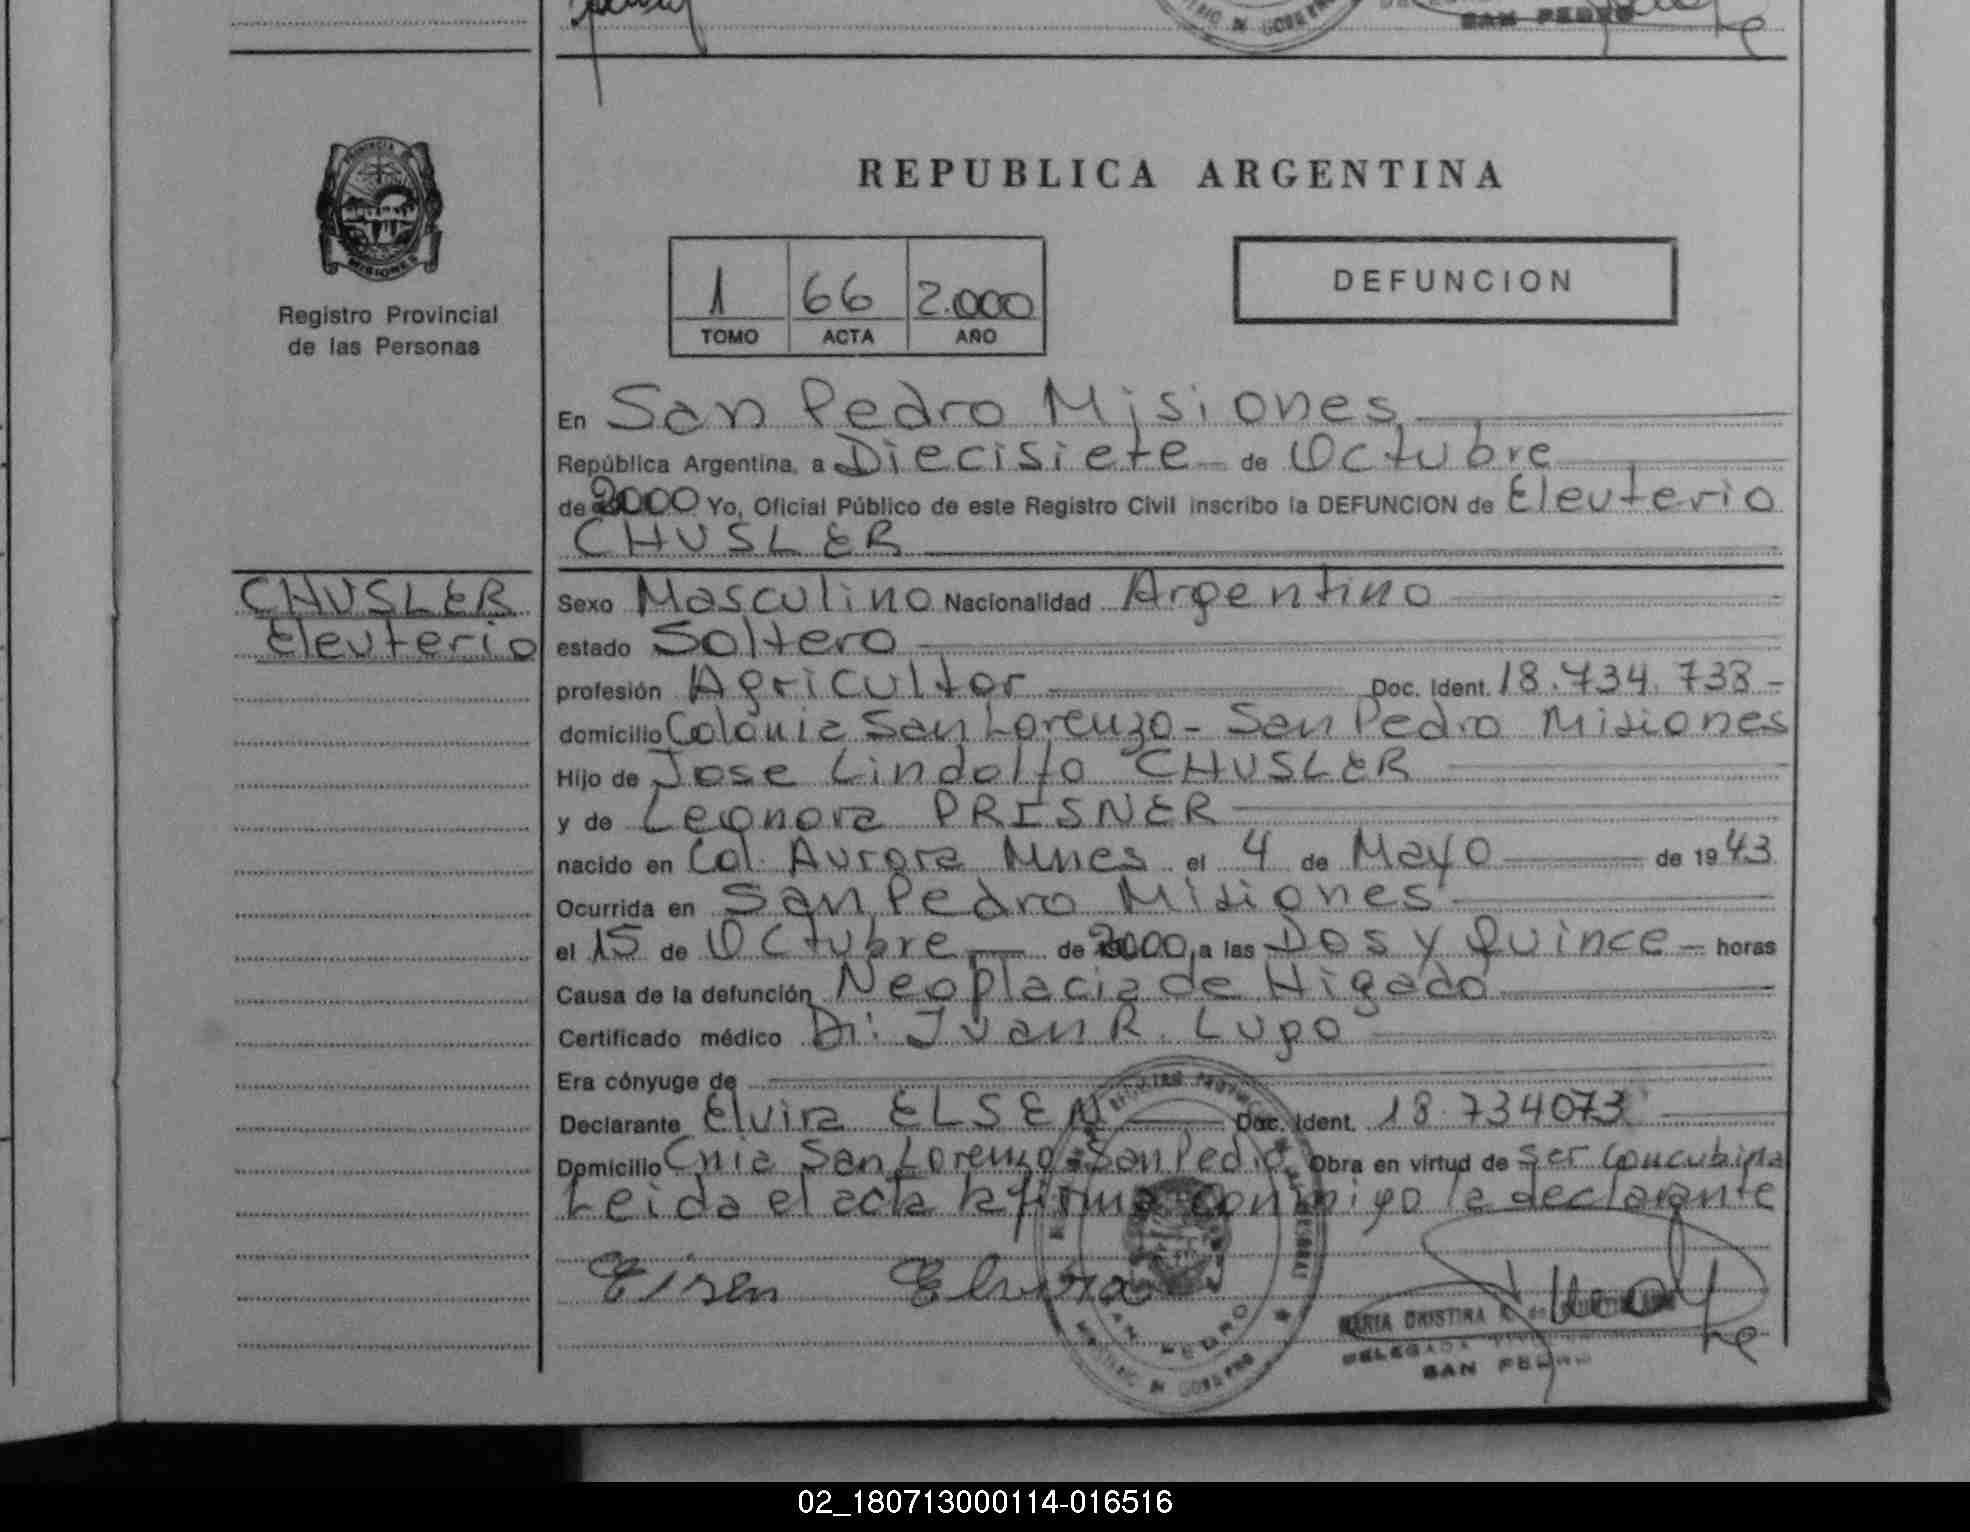 SAN PEDRO
PROVINCIA
MISIONES
Registro Provincial
de las Personas
REPUBLICA ARGENTINA
1 66 2.000
TOMO ACTA AÑO
DEFUNCION
En San Pedro Misiones
República Argentina, a Diecisiete de Octubre
de 2000 Yo, Oficial Público de este Registro Civil inscribo la DEFUNCION de Eleuterio
CHUSLER
CHUSLER
Eleuterio
Sexo Masculino Nacionalidad Argentino
estado Soltero
profesión Agricultor Doc. Ident. 18.734.738-
domicilio Colonia San Lorenzo - San Pedro Misiones
Hijo de Jose Lindolfo CHUSLER
y de Leonora PRISNER
nacido en Col. Aurora Mnes el 4 de Mayo de 1943
Ocurrida en San Pedro Misiones
el 15 de Octubre de 2000, a las Dos y Quince horas
Causa de la defunción Neoplacia de Higado
Certificado médico Dr: Juan R. Lugo
Era cónyuge de
Declarante Elvira ELSEN Doc. Ident. 18.734073
Domicilio Cnia San Lorenzo - San Pedro Obra en virtud de Ser Concubina
Leida el acta la firma conmigo la declarante
Elsen Elvira
MARIA CRISTINA
DELEGADA
SAN PEDRO
SAN PEDRO
02_180713000114-016516